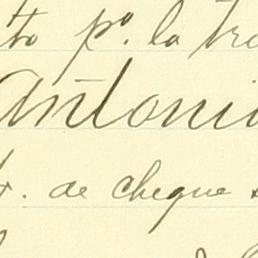 to pº. la tra
Antoni
r. de cheque